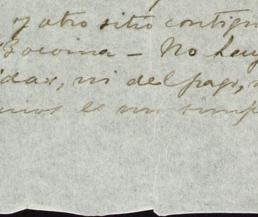 y otro sitio contigu
Cocina — No hay
idar, ni del pago,
mos es un simp